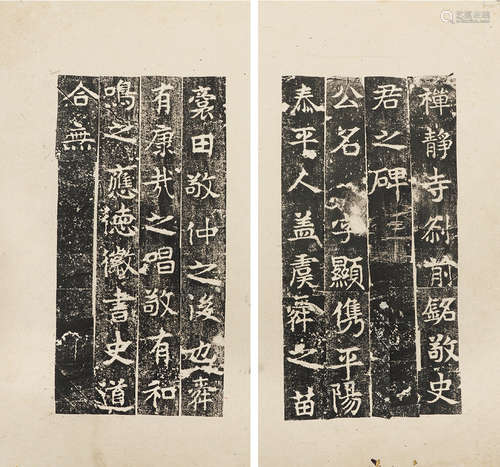 禪靜寺刹前銘敬史
君之碑
公名字顯儁平陽
泰平人盖虞舜之苗
裔田敬仲之後也舜
有康哉之唱敬有和
鳴之應德徽書史道
合無